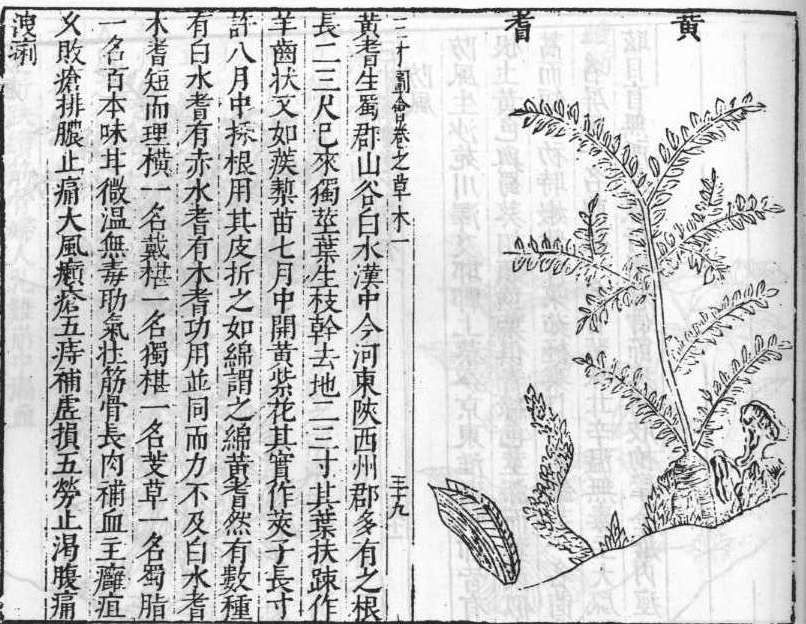 黃耆
三才圖會卷之草木一 三十九
黃耆生蜀郡山谷白水漢中今河東陝西州郡多有之根
長二三尺已來獨莖葉生枝幹去地二三寸其葉扶踈作
羊齒狀又如蒺蔾苗七月中開黃紫花其實作莢子長寸
許八月中採根用其皮折之如綿謂之綿黃耆然有數種
有白水耆有赤水耆有木耆功用並同而力不及白水耆
木耆短而理橫一名戴椹一名獨椹一名芰草一名蜀脂
一名百本味甘微温無毒助氣壯筋骨長肉補血主癰疽
久敗瘡排膿止痛大風癩瘡五痔補虛損五勞止渴腹痛
洩痢